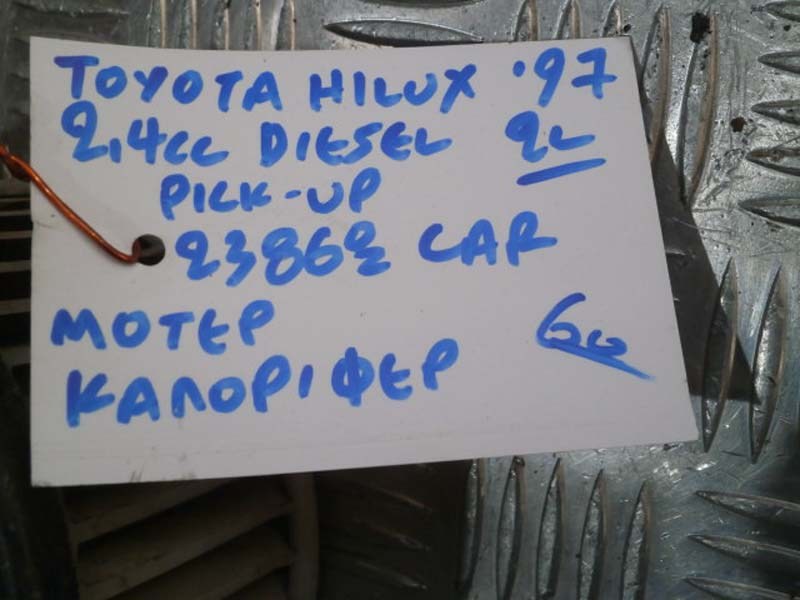 TOYOTA HILUX '97
2,4cc DIESEL 2L
PICK-UP
23862 CAR
ΜΟΤΕΡ 60
ΚΑΛΟΡΙΦΕΡ